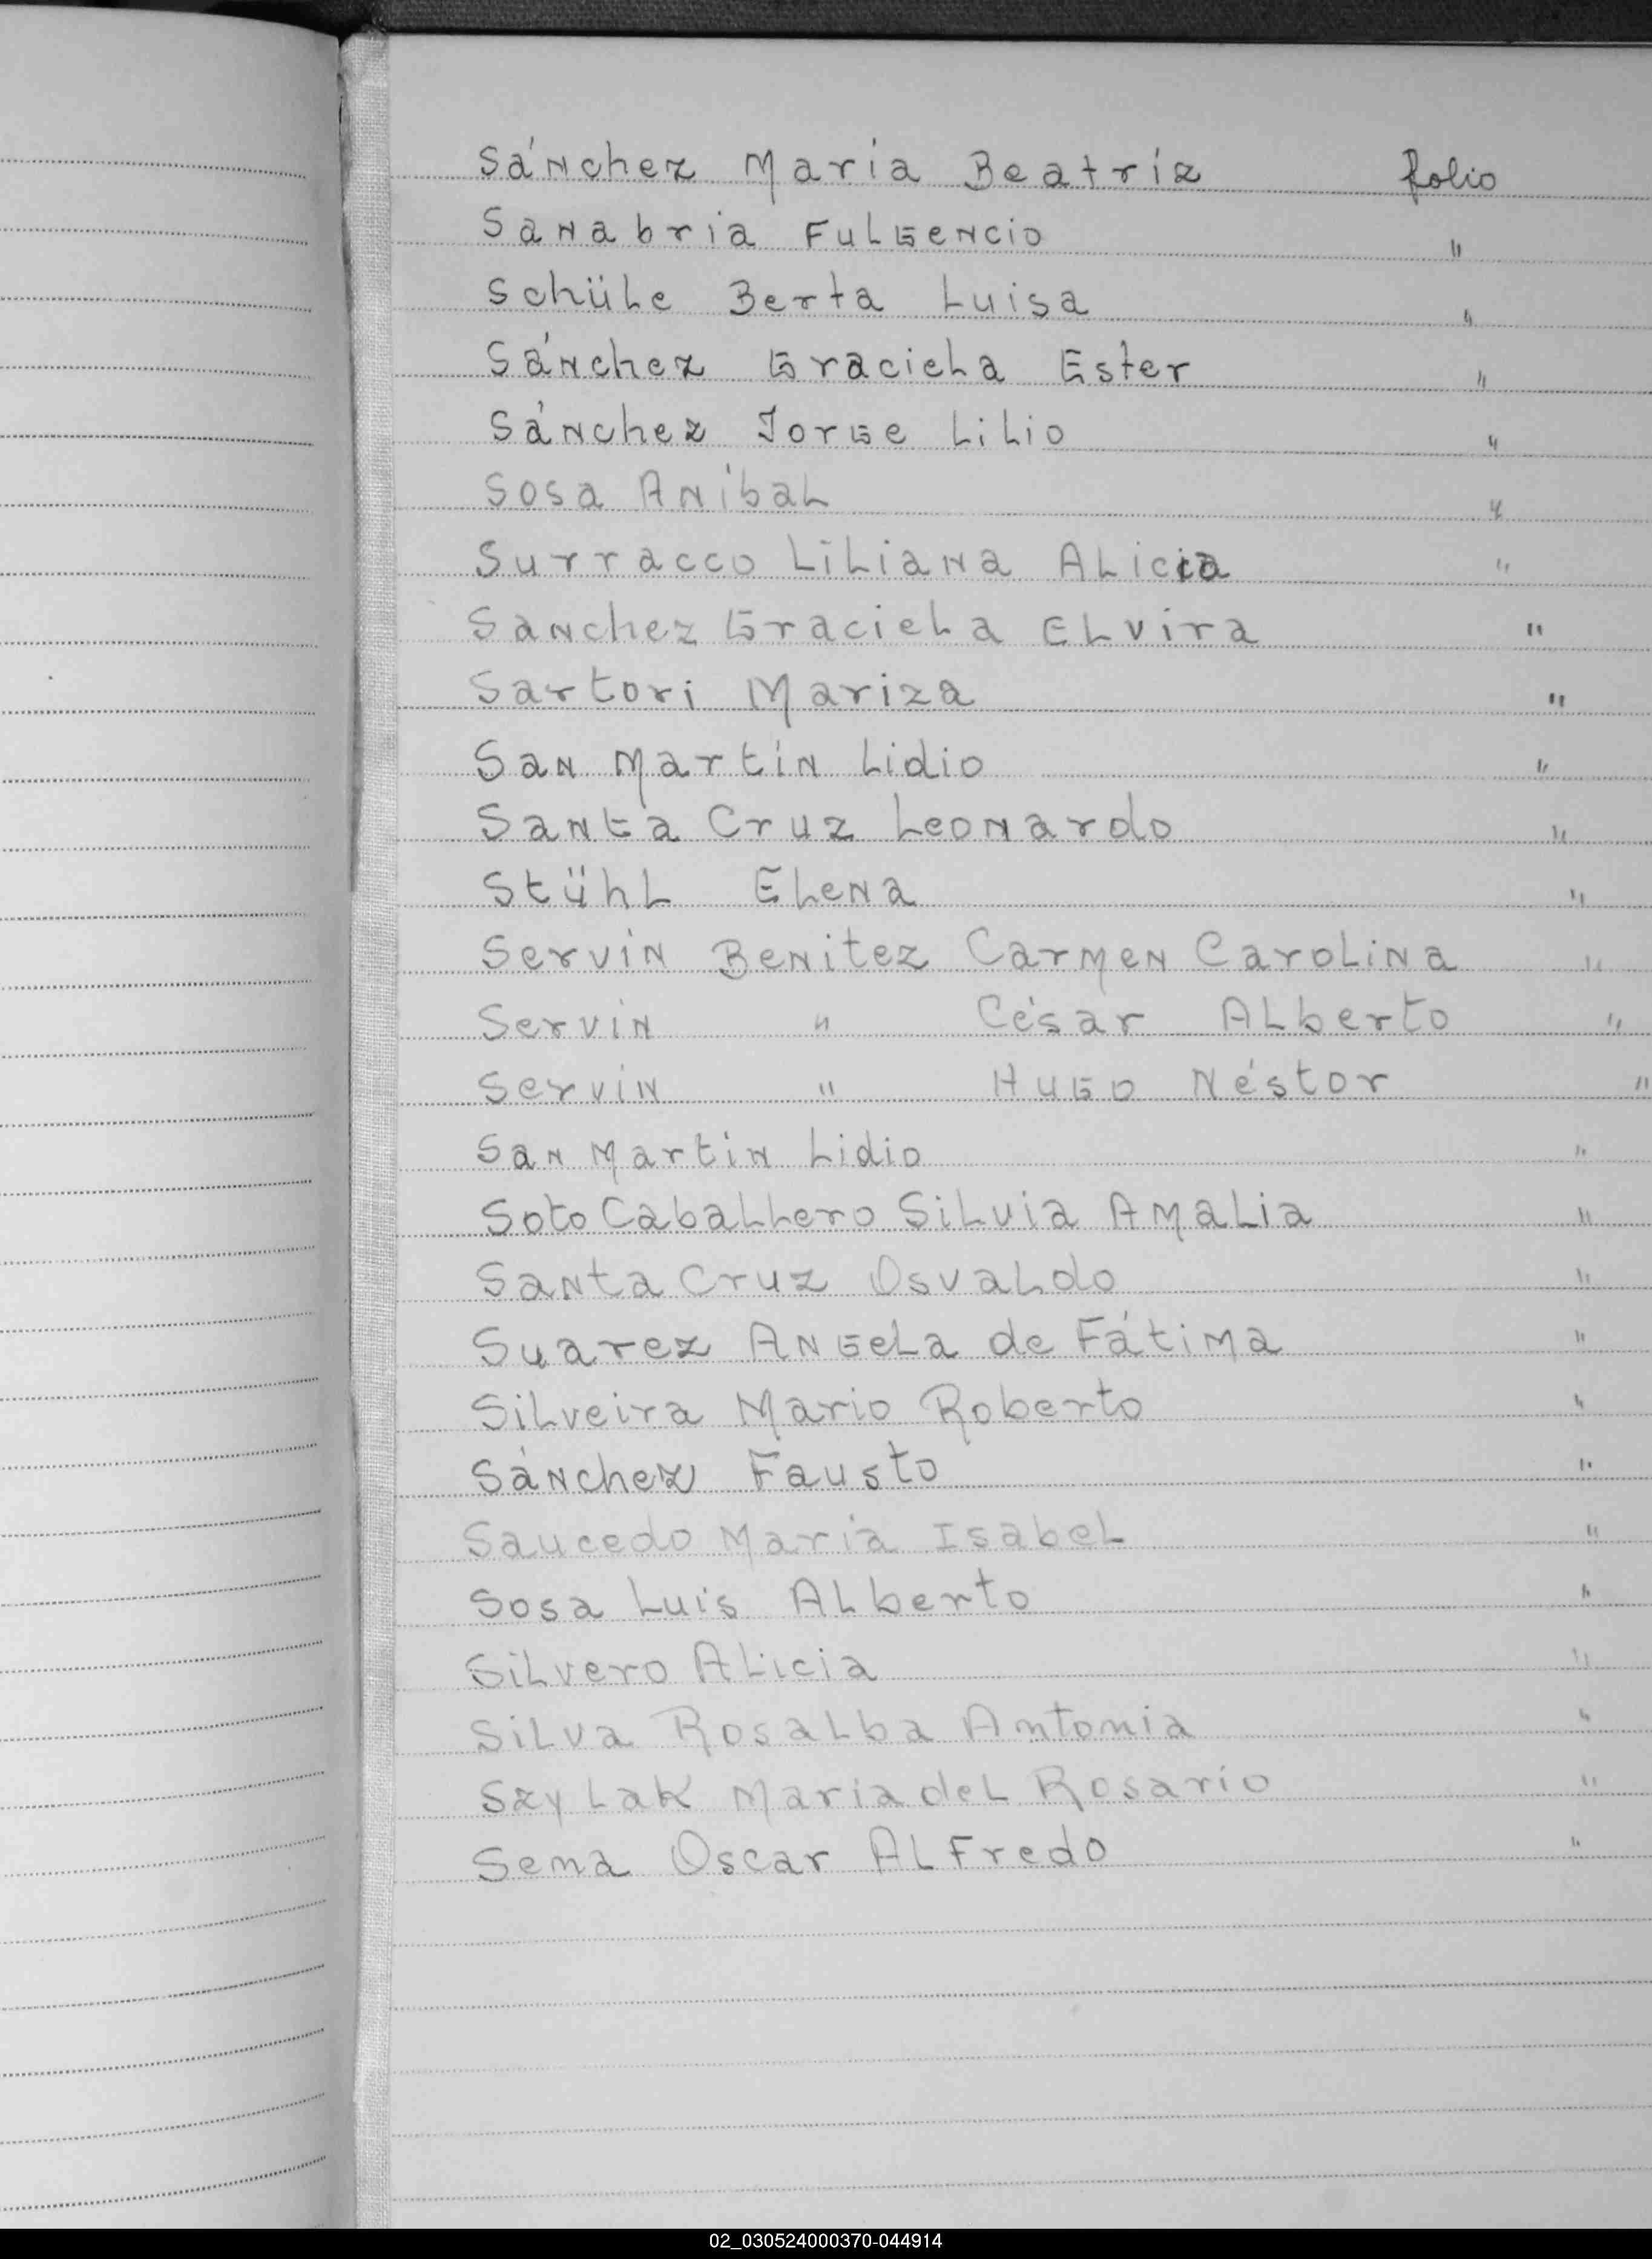 Sánchez María Beatríz folio
Sanabria Fulgencio "
Schüle Berta Luisa "
Sánchez Graciela Ester "
Sánchez Jorge Lilio "
Sosa Aníbal "
Surracco Liliana Alicia "
Sanchez Graciela Elvira "
Sartori Mariza "
San Martín Lidio "
Santa Cruz Leonardo "
Stühl Elena "
Servín Benitez Carmen Carolina "
Servín " César Alberto "
Servín " Hugo Néstor "
San Martín Lidio "
Soto Caballero Silvia Amalia "
Santa Cruz Osvaldo "
Suarez Angela de Fátima "
Silveira Mario Roberto "
Sánchez Fausto "
Saucedo María Isabel "
Sosa Luis Alberto "
Silvero Alicia "
Silva Rosalba Antonia "
Szylak María del Rosario "
Sena Oscar Alfredo "
02_030524000370-044914